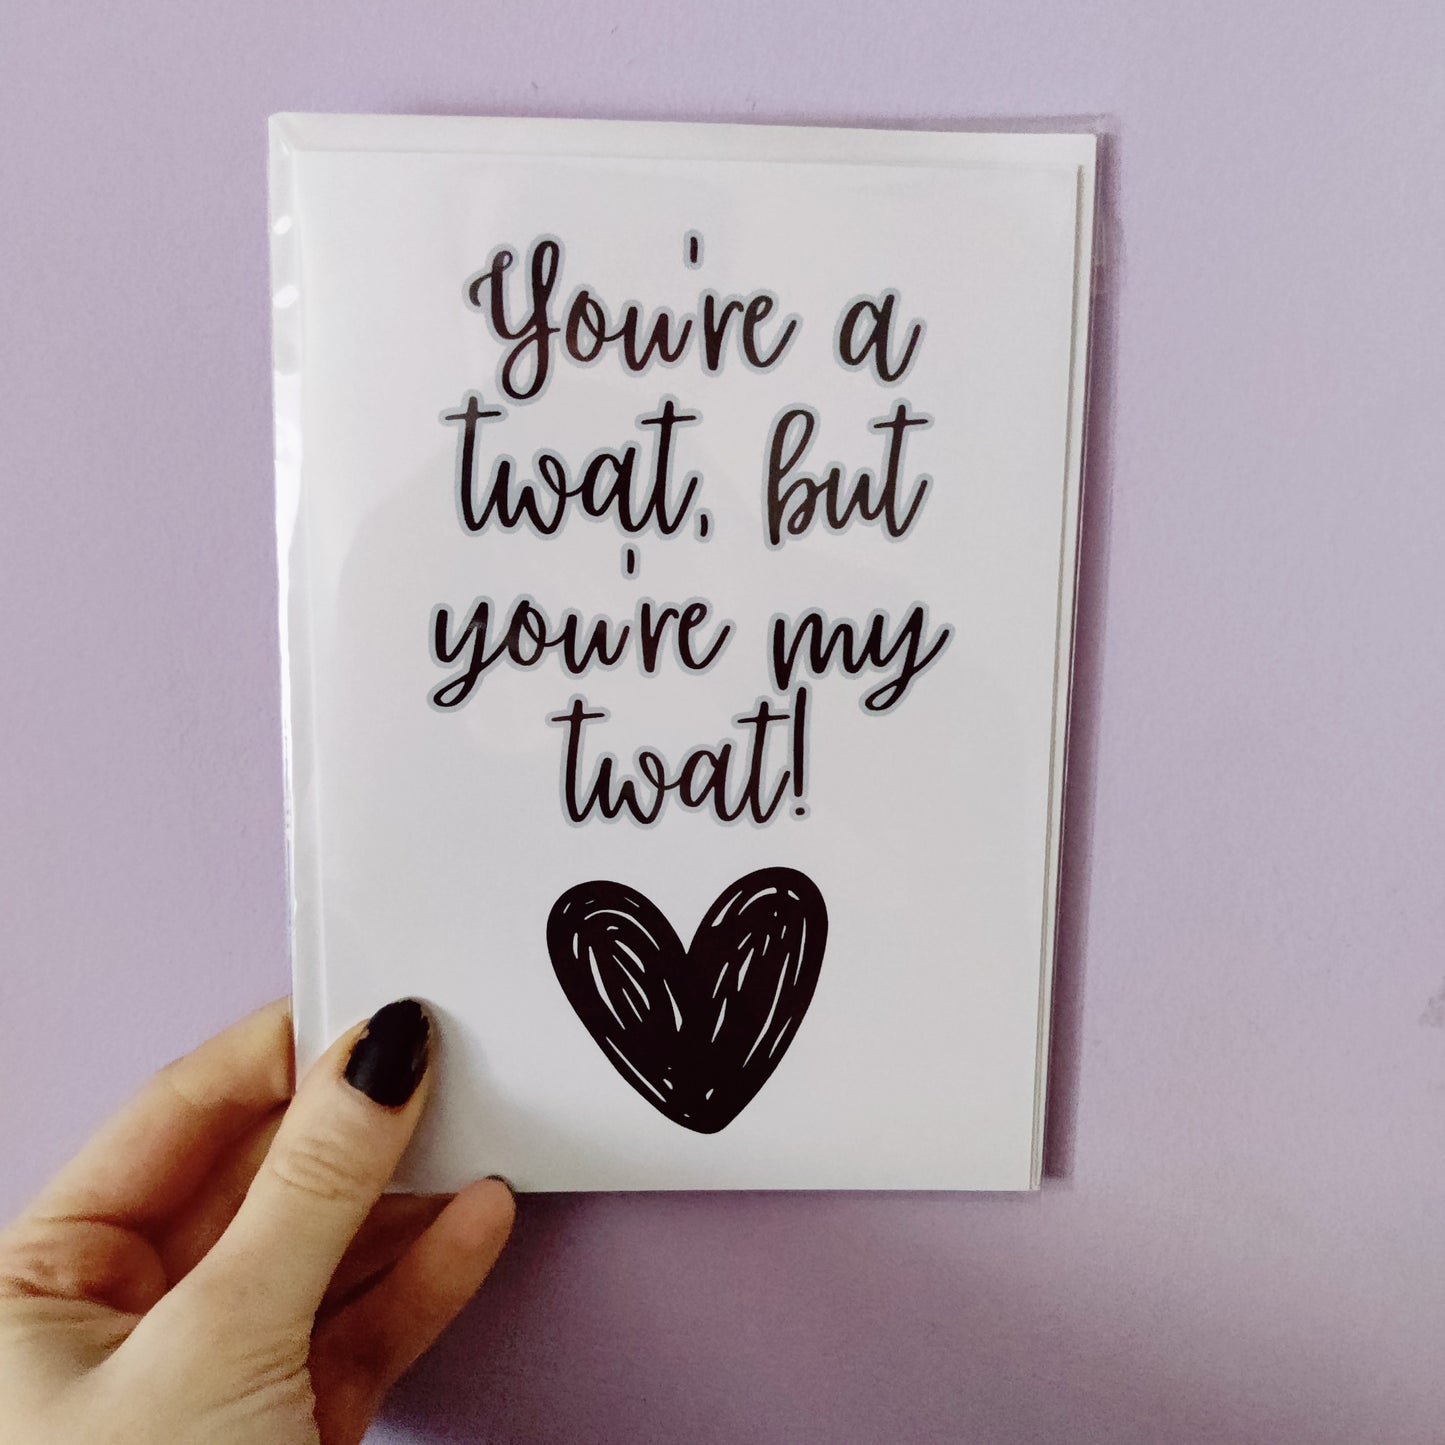 You're a
twat, but
you're my
twat!